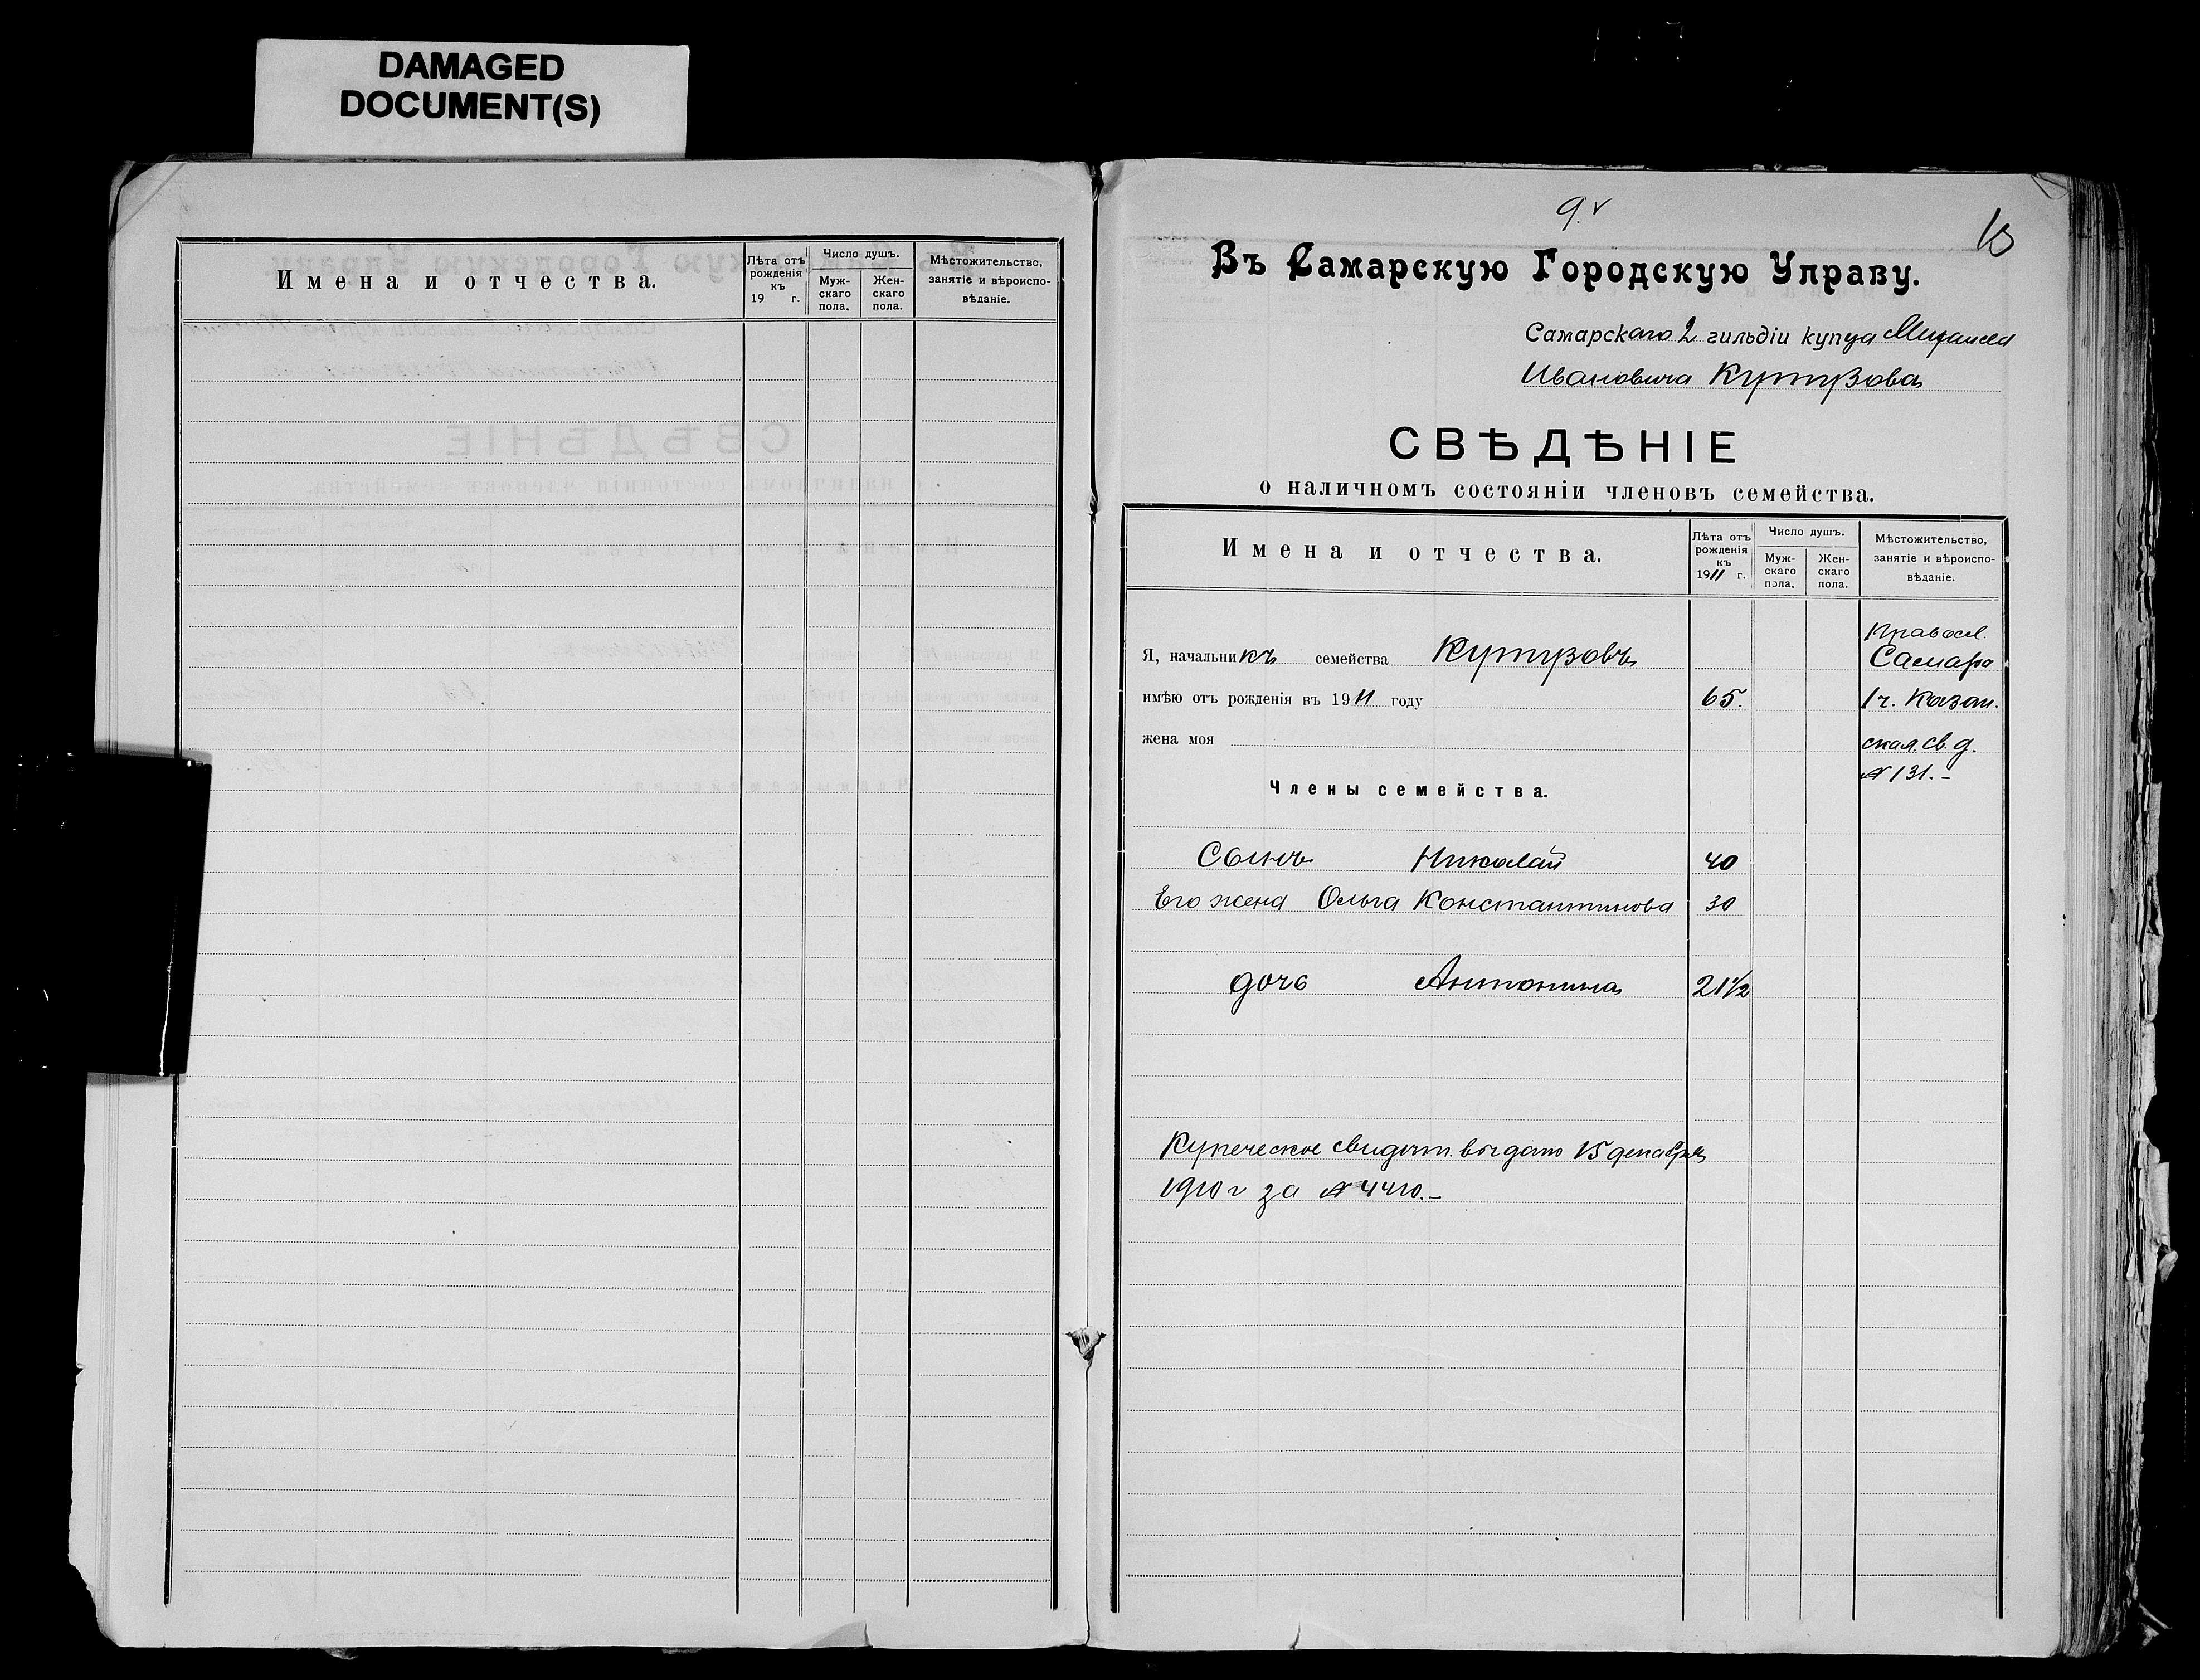 DAMAGED
DOCUMENT(S)
Имена и отчества.
Лѣта отъ
рожденія
къ
19 г.
Число душъ.
Муж-
скаго
пола.
Жен-
скаго
пола.
Мѣстожительство,
занятіе и вѣроиспо-
вѣданіе.
9.
Въ Самарскую Городскую Управу.
Самарскаго 2 гильдіи купца Михаила
Ивановича Кутузова
СВѢДѢНІЕ
о наличномъ состояніи членовъ семейства.
Имена и отчества.
Лѣта отъ
рожденія
къ
1911 г.
Число душъ.
Муж-
скаго
пола.
Жен-
скаго
пола.
Мѣстожительство,
занятіе и вѣроиспо-
вѣданіе.
Правосл.
Я, начальникъ семейства Кутузовъ Самара
имѣю отъ рожденія въ 1911 году 65. 1ч. Казан.
жена моя ская. св. д.
№ 131.–
Члены семейства.
Сынъ Николай 40
Его жена Ольга Константинова 30
дочь Антонина 21½
Купеческое свидѣт. выдано 15 декабря
1910 г за № 4410.–